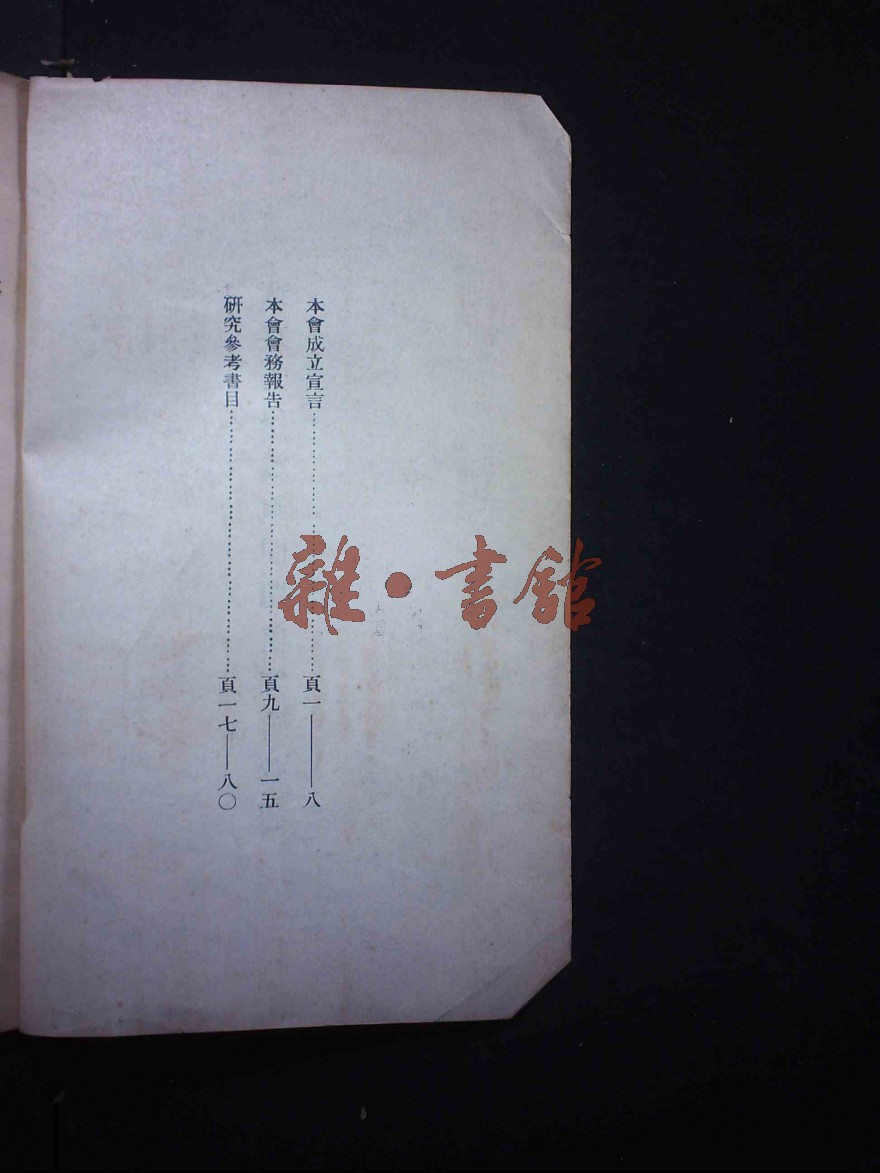 本會成立宣言……………………頁一——八
本會會務報告……………………頁九——一五
研究參考書目……………………頁一七——八〇
雜·書館